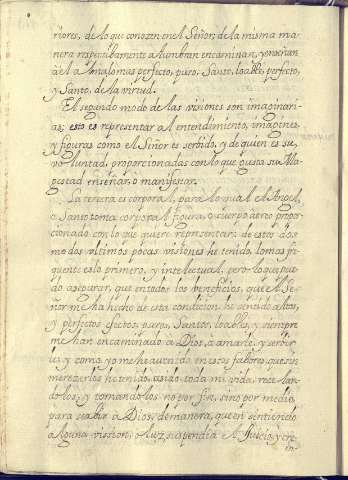 riores, de lo que conozen en el Señor, de la misma ma
nera respectibamente alumbran encaminan, y
a el a Ama lo mas perfecto, puro, Santo, loable, perfecto,
y Santo, de la virtud.
El segundo modo de las visiones son imaginari-
as: esto es representar al entendimiento, imagines,
y figuras como el Señor es serbido, y de quien es su,
voluntad, proporcionadas con lo que gusta su Ma
gestad enseñar, o manifestar.
La tersera es corporal, para lo qual el Angel,
o Santo toma corporal figura, o cuerpo aereo propor
cionado con lo que quiere representar: de estos dos
modos ultimos pocas visiones he tenido, lo mas fre
quente es lo primero, y intelectual, pero lo que pue
do asegurar, que en todos los beneficios, que el Se-
ñor me ha hecho de esta condicion he sentido altos,
y perfectos efectos, puros, Santos, loables, y siempre
me han encaminado a Dios, a amarle, y serbir
le; y como yo me he auenido en estos fabores que sin
merezerlos he tenido, a sido toda mi vida, rezelan-
dolos, y tomandolos no por fin, sino por medio,
para subir a Dios, de manera, que en sintiendo
alguna vission, o luz, suspendia el Juicio, y cre
en-